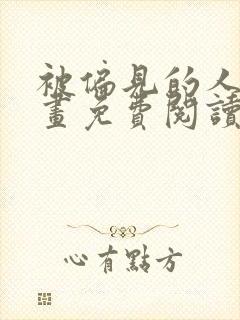 被偏見的人
畫免費閱讀
心有點方